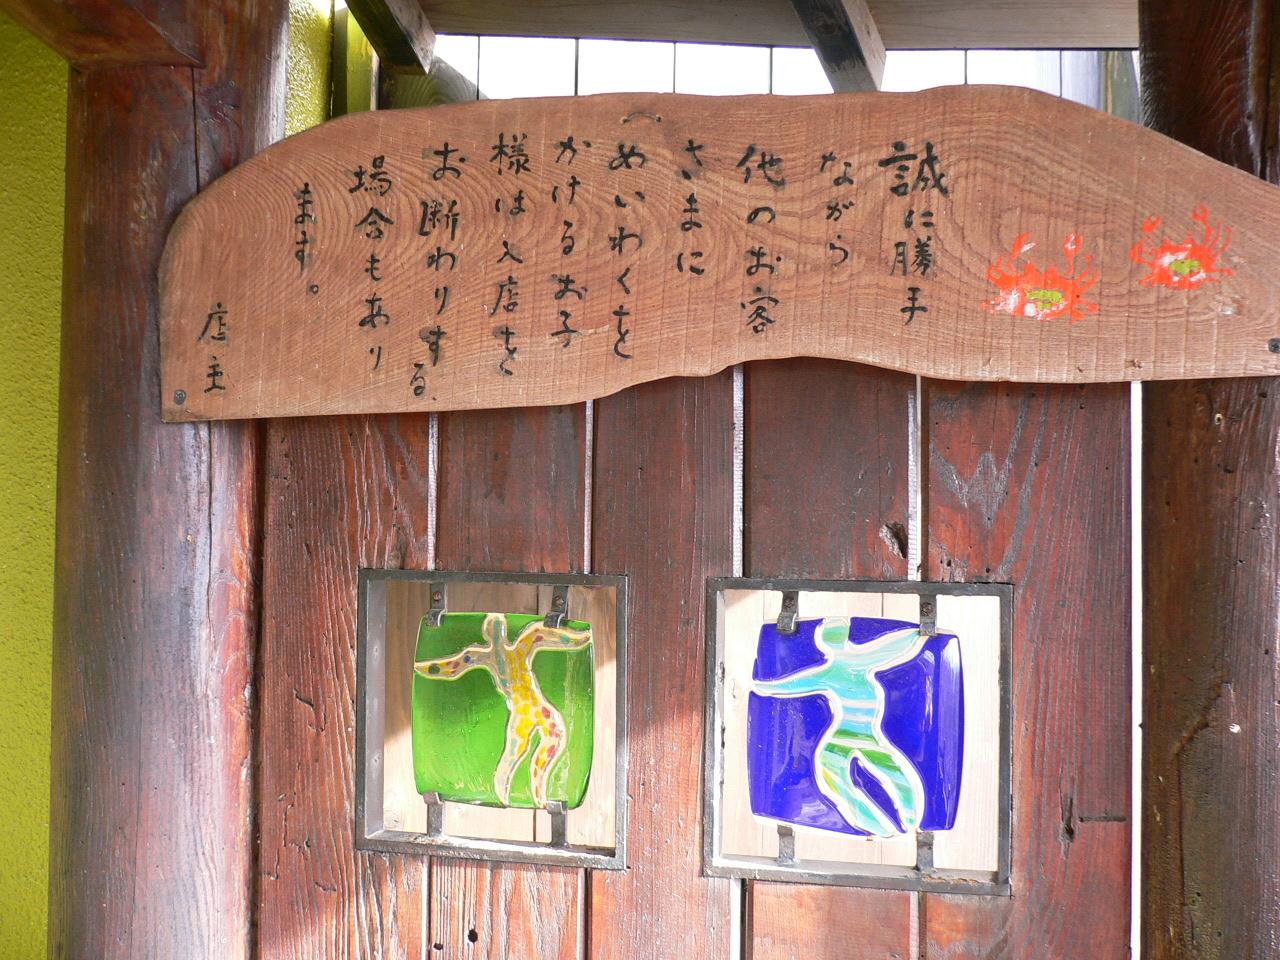 誠に勝手
ながら
他のお客
さまに
めいわくを
かけるお子
様は入店を
お断わりする
場合もあり
ます。
店主